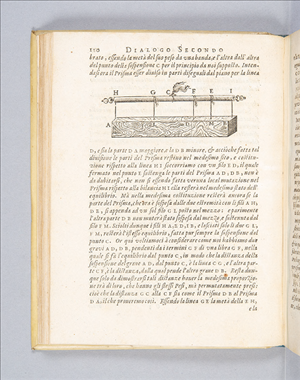 110 DIALOGO SECONDO
brato, essendo la metà del suo peso da una banda, e l'altra dall'altra
del punto della sospensione C per il principio da noi supposto. Inten-
desi ora il Prisma esser diviso in parti diseguali dal piano per la linea
H G C F E I
A D B
D, e sia la parte D A maggiore, e la D B minore, & acciochè fatta tal
divisione le parti del Prisma restino nel medesimo sito, e costitu-
zione rispetto alla linea H I soccorriamo con un filo E D, il quale
fermato nel punto E sostenga le parti del Prisma A D, D B, non è
da dubitarsi, che non si essendo fatta veruna local mutazione nel
Prisma rispetto alla bilancia H I ella resterà nel medesimo stato dell'
equilibrio. Mà nella medesima costituzione resterà ancora se la
parte del Prisma, che ora è sospesa dalle due estremità con li fili A H,
D E, si appenda ad un sol filo G L posto nel mezzo: e parimente
l'altra parte D B non muterà stato sospesa dal mezzo, e sostenuta dal
filo F M. Sciolti dunque i fili H A, E D, I B, e lasciati solo li due G L,
F M, resterà l'istesso equilibrio, fatta pur sempre la sospensione dal
punto C. Or qui voltiamoci à considerare come noi habbiamo due
gravi A D, D B, pendenti da i termini G F di una libra G F, nella
quale si fà l'equilibrio dal punto C, in modo che la distanza della
sospensione del grave A D, dal punto C, è la linea C G, e l'altra par-
te C F, è la distanza, dalla qual pende l'altro grave D B. Resta dun-
que solo da dimostrarsi tali distanze haver la medesima proporzio-
ne trà di loro, che hanno gli stessi Pesi, mà permutatamente presi:
cioè che la distanza G C alla C F sia come il Prisma D B al Prisma
D A, il che proveremo così. Essendo la linea G E la metà della E H,
e la